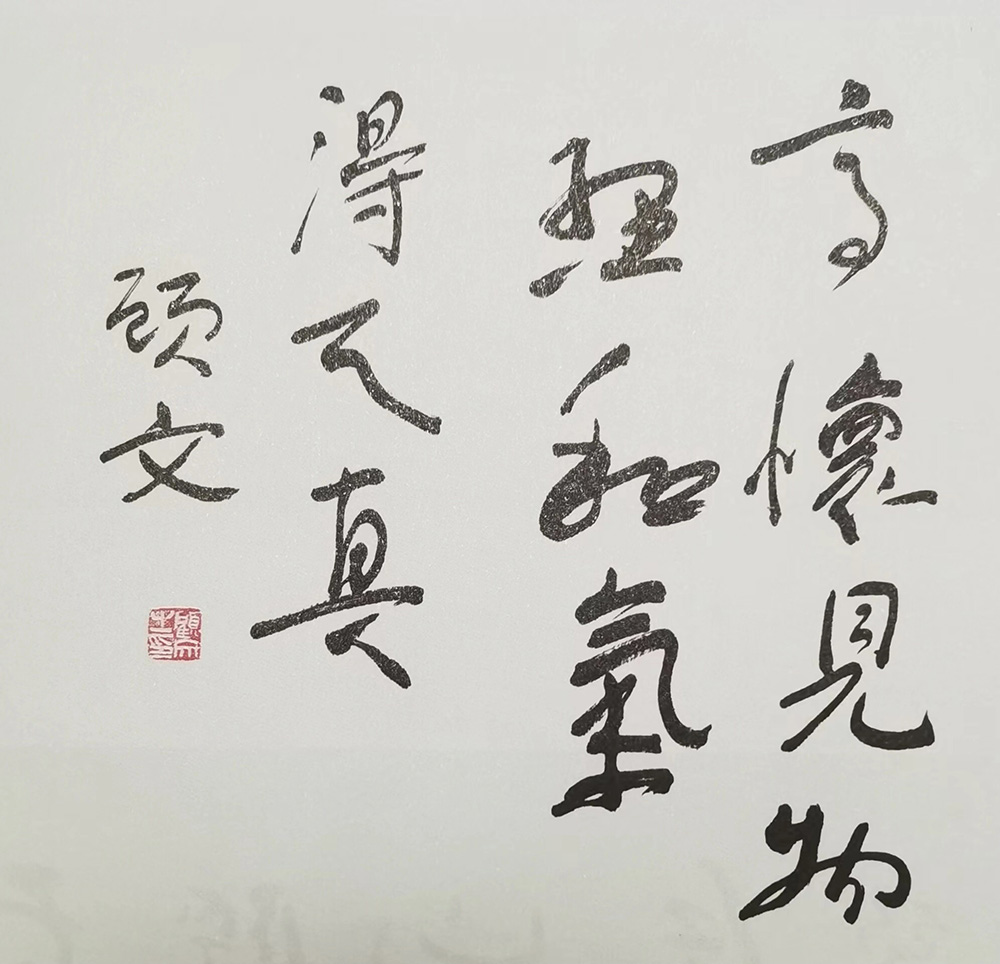 高懷見物
理和氣
得天真
顧文